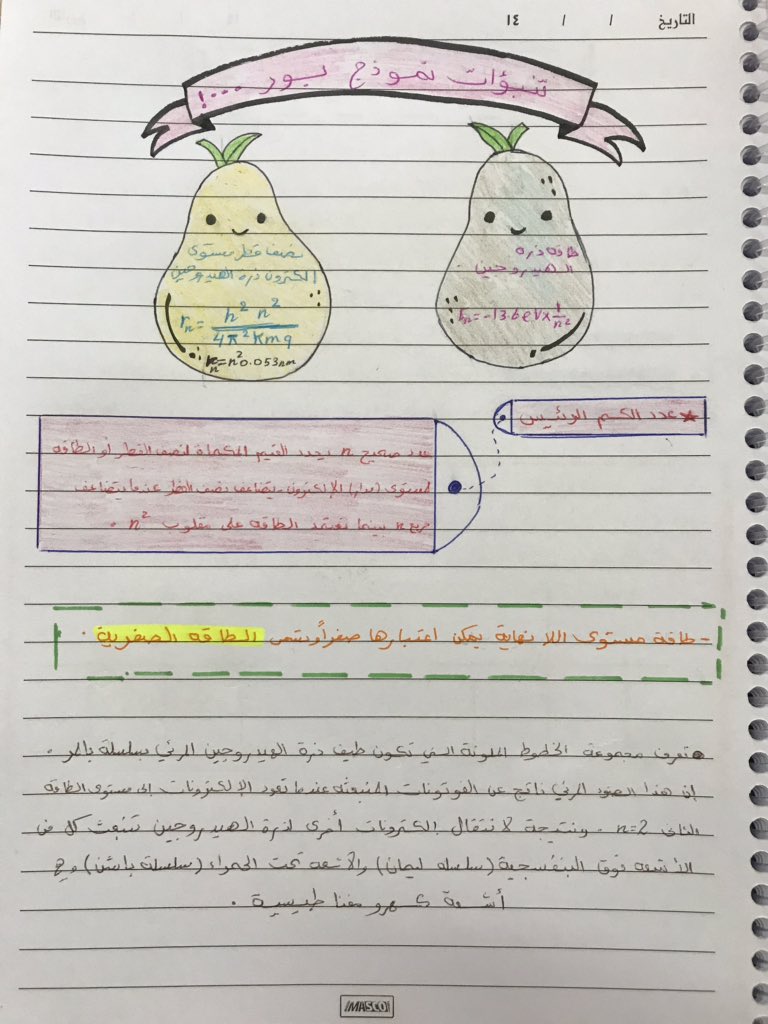 التاريخ / / ١٤
تنبؤات نموذج بور ...!
نصف قطر مستوى
الكترون ذرة الهيدروجين
rₙ = h² n² / 4π² K m q
rₙ = n² 0.053nm
طاقه ذره
الهيدروجين
Eₙ = -13.6 eV × 1/n²
★ عدد الكم الرئيس
عدد صحيح n يحدد القيم المكماة لنصف القطر أو الطاقه
لمستوى (مدار) الإلكترون، يتضاعف نصف القطر عندما يتضاعف
مربع n بينما تعتمد الطاقه على مقلوب n² .
- طاقة مستوى اللا نهاية يمكن اعتبارها صفراً وتسمى الطاقه الصفرية .
• تعرف مجموعة الخطوط الملونة التي تكون طيف ذرة الهيدروجين المرئي بسلسلة بالمر .
إن هذا الضوء المرئي ناتج عن الفوتونات المنبعثه عندما تعود الإلكترونات إلى مستوى الطاقة
الثاني n=2 . ونتيجة لانتقال إلكترونات أخرى لذرة الهيدروجين تنبعث كل من
الأشعه فوق البنفسجية (سلسله ليمان) والأشعه تحت الحمراء (سلسلة باشن) وهي
أشعة كهرومغناطيسية .
MASCO